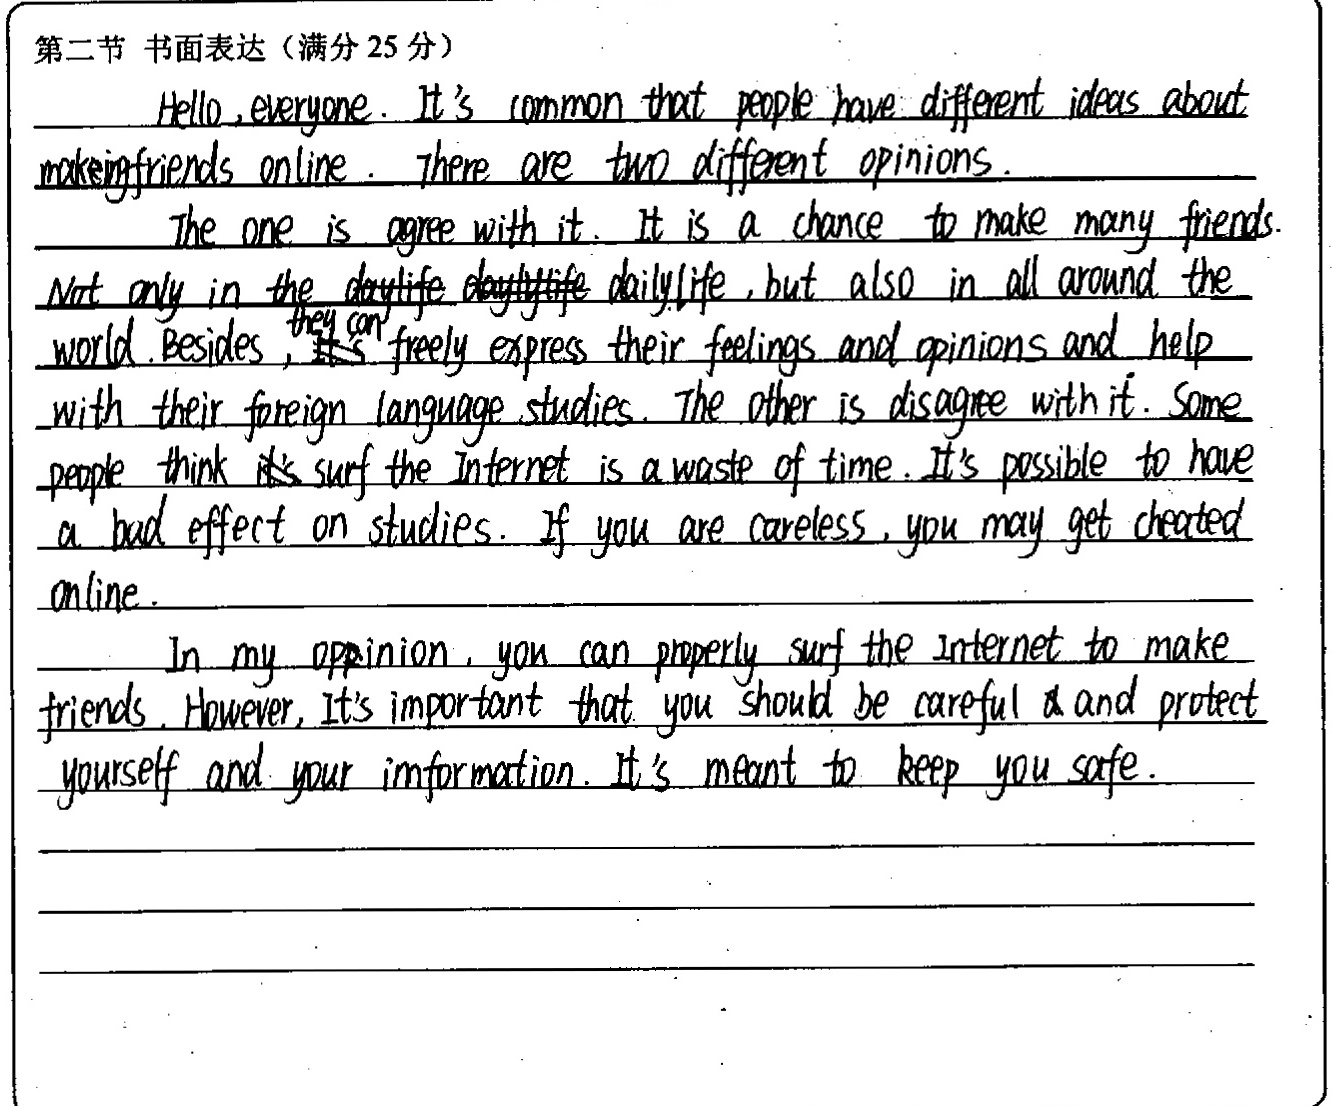 第二节 书面表达（满分 25 分）
Hello, everyone. It's common that people have different ideas about
makeingfriends online. There are two different opinions.
The one is agree with it. It is a chance to make many friends.
Not only in the daylife daylylife dailylife, but also in all around the
world. Besides, it's they can freely express their feelings and opinions and help
with their foreign language studies. The other is disagree with it. Some
people think it's surf the Internet is a waste of time. It's possible to have
a bad effect on studies. If you are careless, you may get cheated
online.
In my oppinion, you can properly surf the Internet to make
friends. However, It's important that you should be careful & and protect
yourself and your imformation. It's meant to keep you safe.